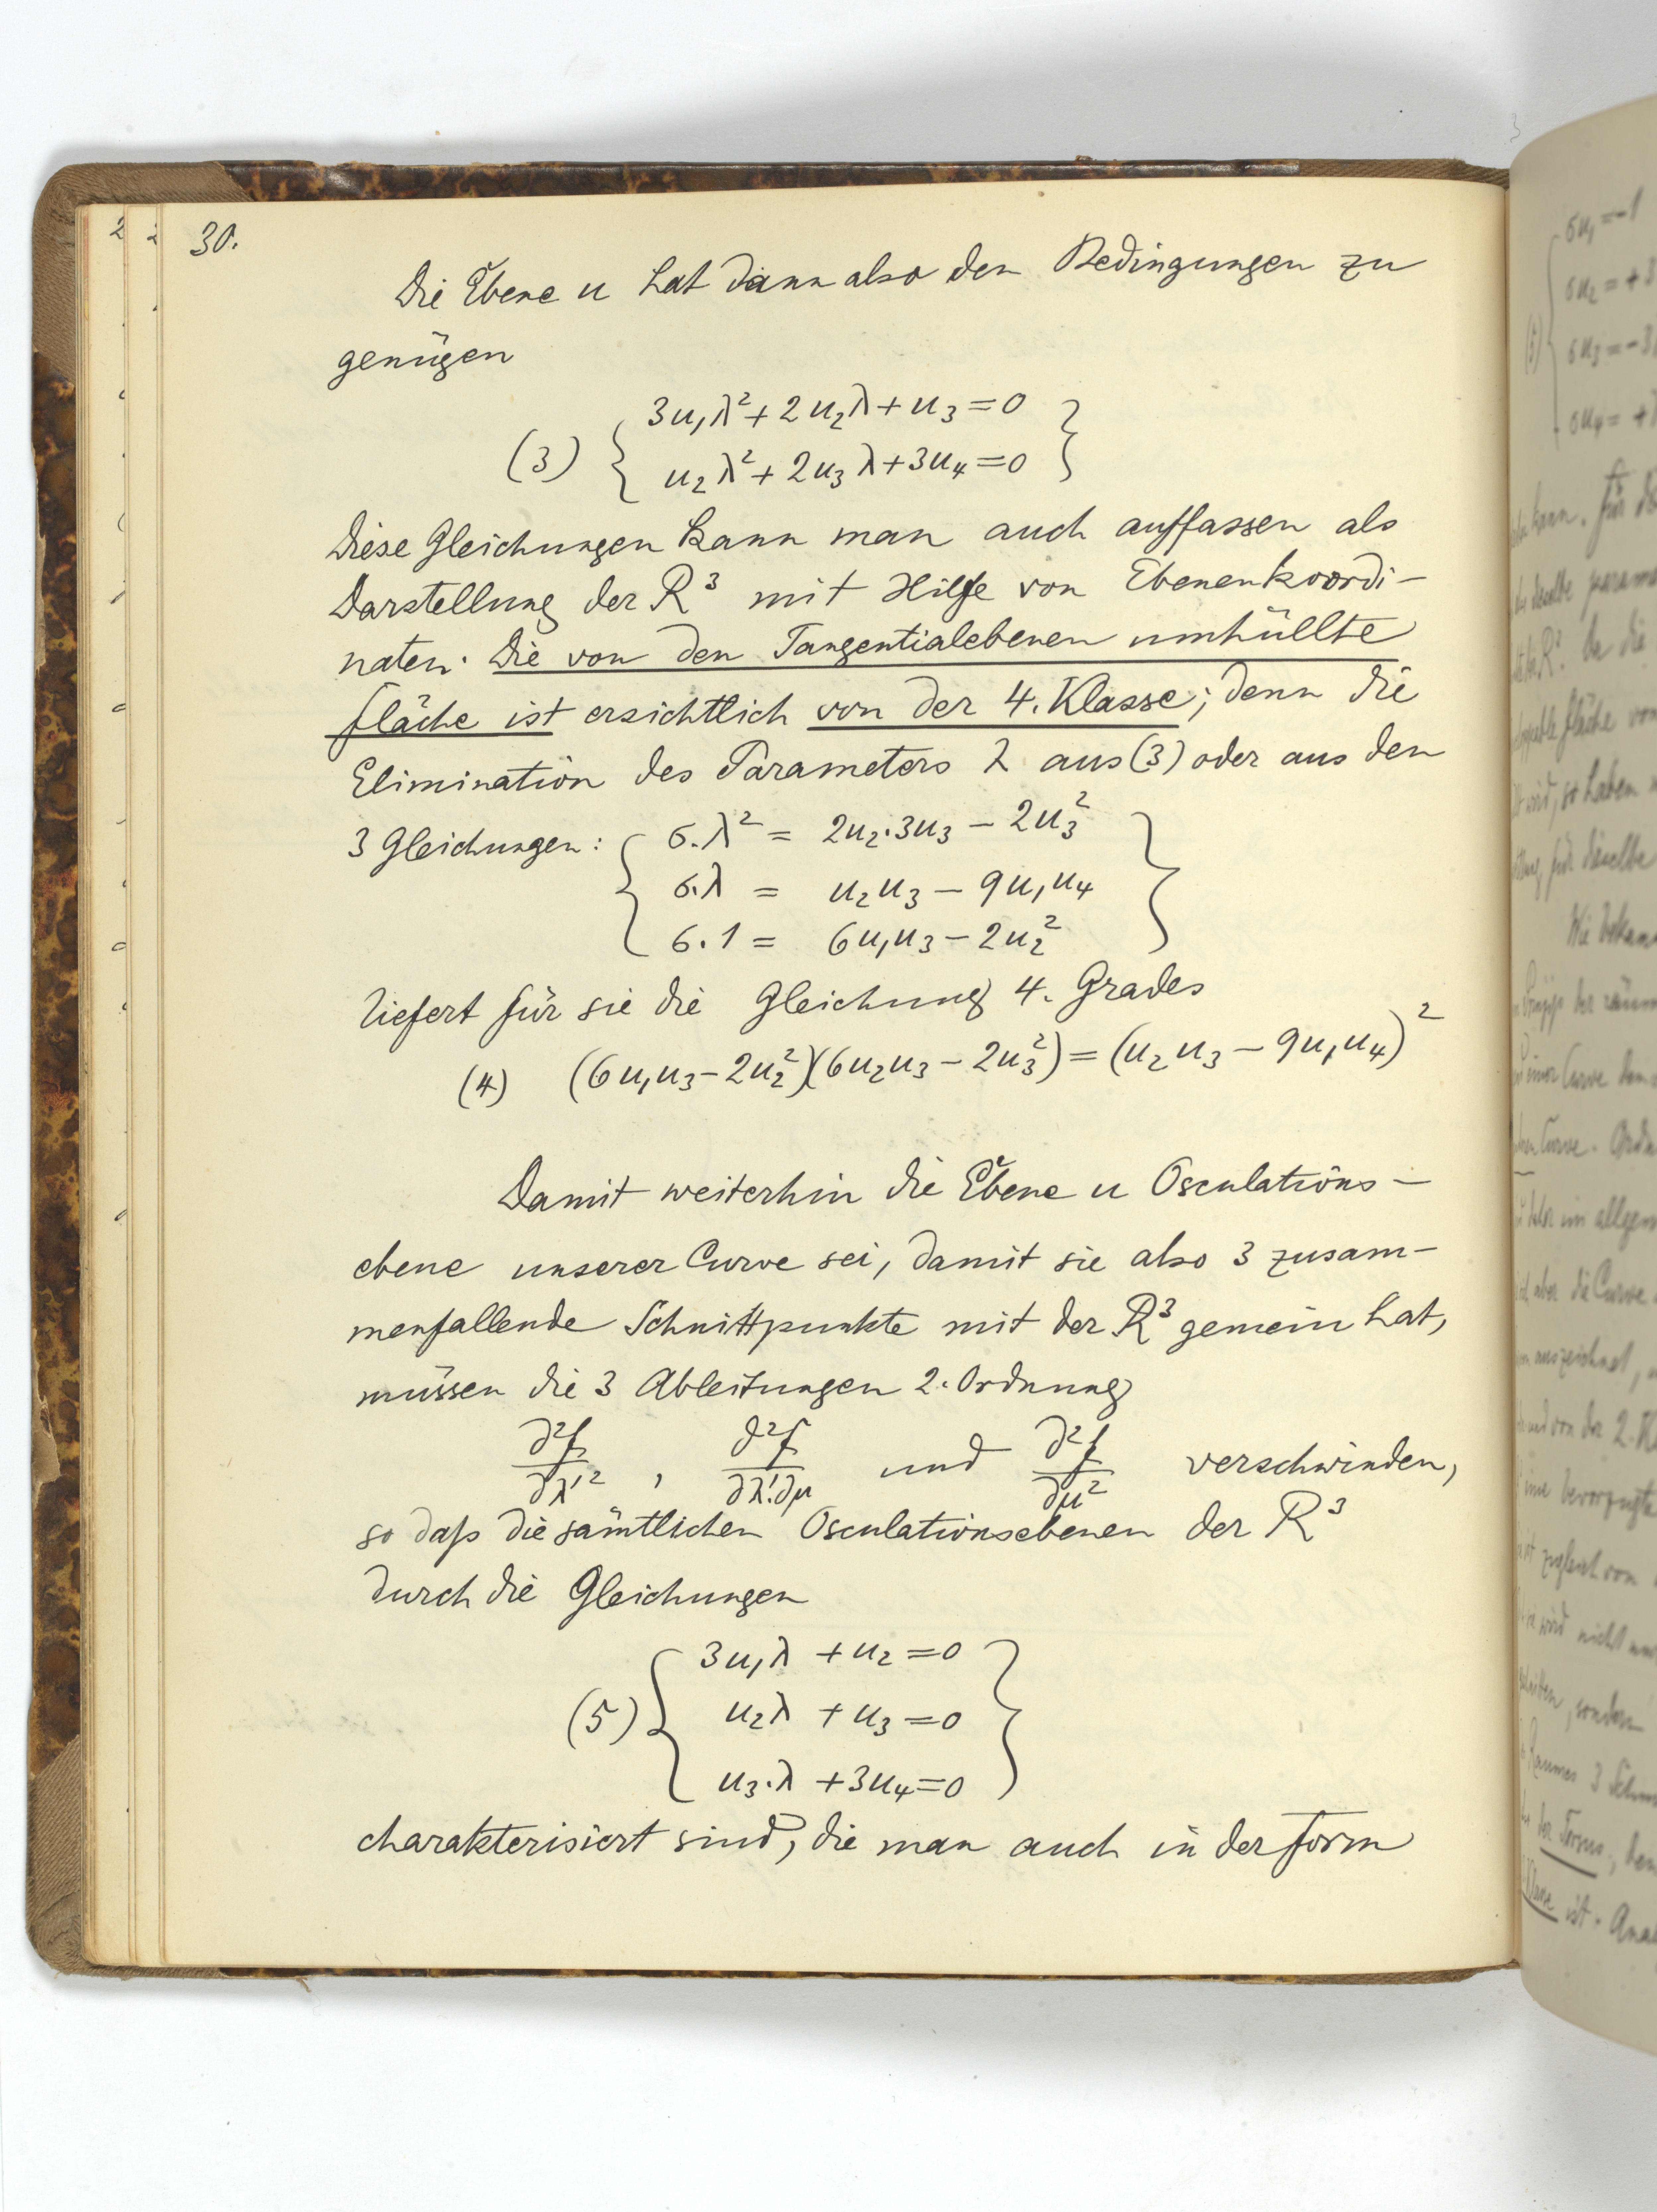 30.
Die Ebene u hat dann also den Bedingungen zu
genügen
(3) { 3u₁λ² + 2u₂λ + u₃ = 0
u₂λ² + 2u₃λ + 3u₄ = 0 }
Diese Gleichungen kann man auch auffassen als
Darstellung der R³ mit Hilfe von Ebenenkoordi-
naten. Die von den Tangentialebenen umhüllte
Fläche ist ersichtlich von der 4. Klasse; denn die
Elimination des Parameters λ aus (3) oder aus den
3 Gleichungen: { σ.λ² = 2u₂.3u₃ − 2u₃²
σ.λ = u₂u₃ − 9u₁u₄
σ.1 = 6u₁u₃ − 2u₂² }
liefert für sie die Gleichung 4. Grades
(4) (6u₁u₃ − 2u₂²)(6u₂u₃ − 2u₃²) = (u₂u₃ − 9u₁u₄)²
Damit weiterhin die Ebene u Osculations-
ebene unserer Curve sei, damit sie also 3 zusam-
menfallende Schnittpunkte mit der R³ gemein hat,
müssen die 3 Ableitungen 2. Ordnung
∂²f/∂λ'², ∂²f/∂λ'.∂μ und ∂²f/∂μ² verschwinden,
so daß die sämtlichen Osculationsebenen der R³
durch die Gleichungen
(5) { 3u₁λ + u₂ = 0
u₂λ + u₃ = 0
u₃.λ + 3u₄ = 0 }
charakterisiert sind, die man auch in der Form